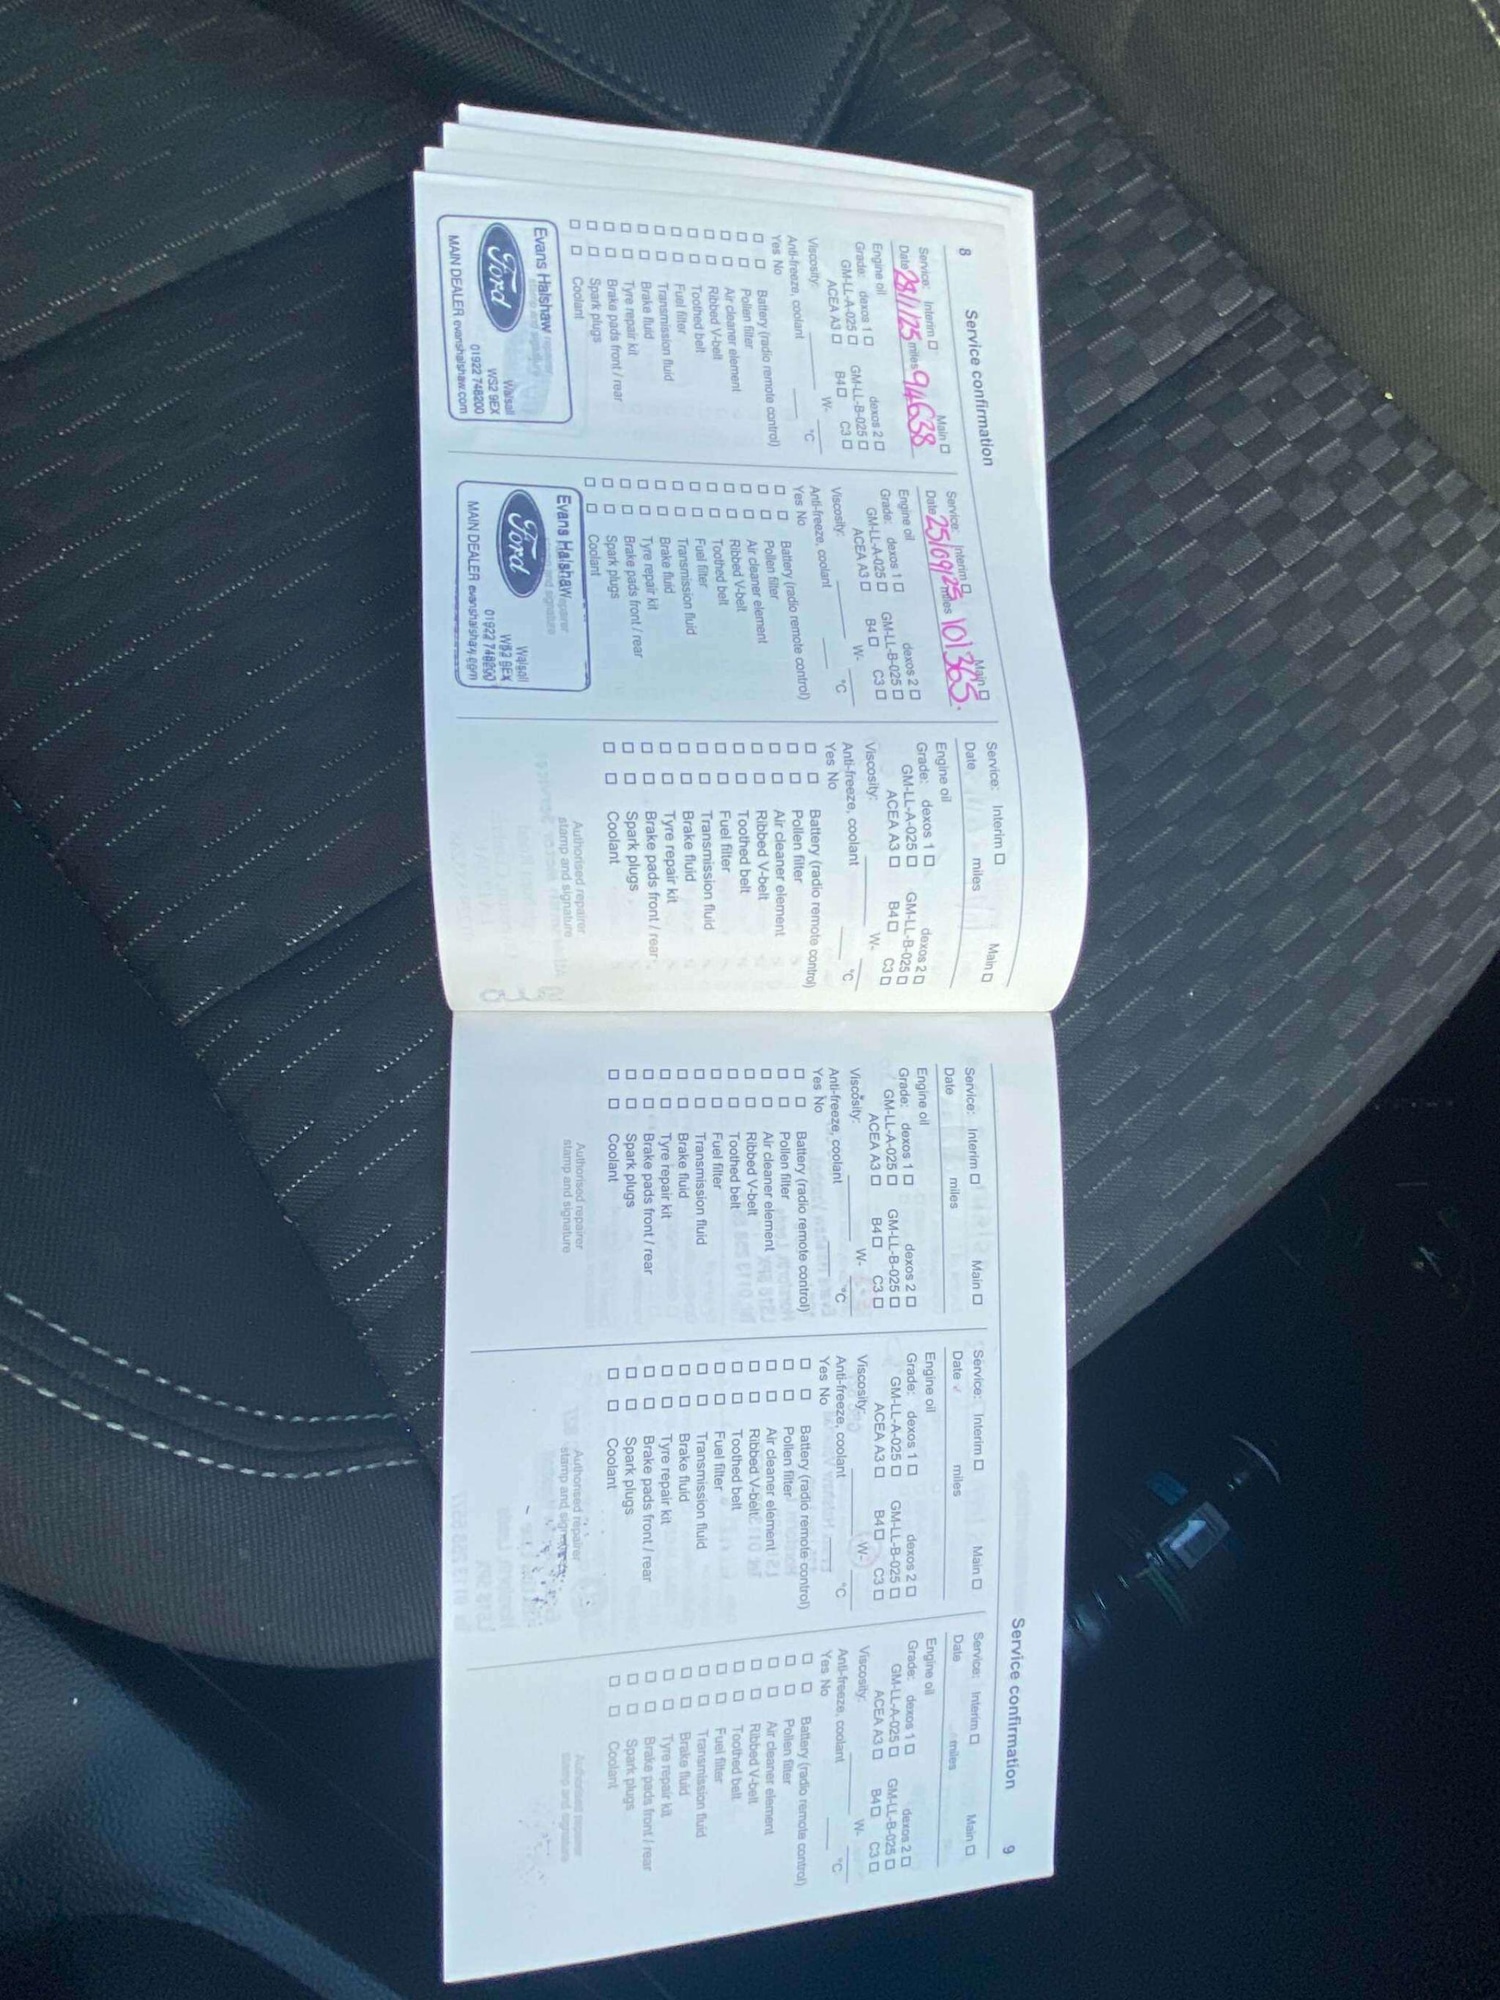 8
Service confirmation
Service: Interim ☐ Main ☐
Date 28/1/25 miles 94638
Engine oil
Grade: dexos 1 ☐ dexos 2 ☐
GM-LL-A-025 ☐ GM-LL-B-025 ☐
ACEA A3 ☐ B4 ☐ C3 ☐
Viscosity: W-
Anti-freeze, coolant °C
Yes No
☐ ☐ Battery (radio remote control)
☐ ☐ Pollen filter
☐ ☐ Air cleaner element
☐ ☐ Ribbed V-belt
☐ ☐ Toothed belt
☐ ☐ Fuel filter
☐ ☐ Transmission fluid
☐ ☐ Brake fluid
☐ ☐ Tyre repair kit
☐ ☐ Brake pads front / rear
☐ ☐ Spark plugs
☐ ☐ Coolant
Evans Halshaw
Ford
Walsall
WS2 9EX
01922 748200
MAIN DEALER evanshalshaw.com
Service: Interim ☐ Main ☐
Date 25/09/25 miles 101365.
Engine oil
Grade: dexos 1 ☐ dexos 2 ☐
GM-LL-A-025 ☐ GM-LL-B-025 ☐
ACEA A3 ☐ B4 ☐ C3 ☐
Viscosity: W-
Anti-freeze, coolant °C
Yes No
☐ ☐ Battery (radio remote control)
☐ ☐ Pollen filter
☐ ☐ Air cleaner element
☐ ☐ Ribbed V-belt
☐ ☐ Toothed belt
☐ ☐ Fuel filter
☐ ☐ Transmission fluid
☐ ☐ Brake fluid
☐ ☐ Tyre repair kit
☐ ☐ Brake pads front / rear
☐ ☐ Spark plugs
☐ ☐ Coolant
Evans Halshaw
Ford
Walsall
WS2 9EX
01922 748200
MAIN DEALER evanshalshaw.com
Service: Interim ☐ Main ☐
Date miles
Engine oil
Grade: dexos 1 ☐ dexos 2 ☐
GM-LL-A-025 ☐ GM-LL-B-025 ☐
ACEA A3 ☐ B4 ☐ C3 ☐
Viscosity: W-
Anti-freeze, coolant °C
Yes No
☐ ☐ Battery (radio remote control)
☐ ☐ Pollen filter
☐ ☐ Air cleaner element
☐ ☐ Ribbed V-belt
☐ ☐ Toothed belt
☐ ☐ Fuel filter
☐ ☐ Transmission fluid
☐ ☐ Brake fluid
☐ ☐ Tyre repair kit
☐ ☐ Brake pads front / rear
☐ ☐ Spark plugs
☐ ☐ Coolant
Authorised repairer
stamp and signature
Service confirmation
9
Service: Interim ☐ Main ☐
Date miles
Engine oil
Grade: dexos 1 ☐ dexos 2 ☐
GM-LL-A-025 ☐ GM-LL-B-025 ☐
ACEA A3 ☐ B4 ☐ C3 ☐
Viscosity: W-
Anti-freeze, coolant °C
Yes No
☐ ☐ Battery (radio remote control)
☐ ☐ Pollen filter
☐ ☐ Air cleaner element
☐ ☐ Ribbed V-belt
☐ ☐ Toothed belt
☐ ☐ Fuel filter
☐ ☐ Transmission fluid
☐ ☐ Brake fluid
☐ ☐ Tyre repair kit
☐ ☐ Brake pads front / rear
☐ ☐ Spark plugs
☐ ☐ Coolant
Authorised repairer
stamp and signature
Service: Interim ☐ Main ☐
Date miles
Engine oil
Grade: dexos 1 ☐ dexos 2 ☐
GM-LL-A-025 ☐ GM-LL-B-025 ☐
ACEA A3 ☐ B4 ☐ C3 ☐
Viscosity: W-
Anti-freeze, coolant °C
Yes No
☐ ☐ Battery (radio remote control)
☐ ☐ Pollen filter
☐ ☐ Air cleaner element
☐ ☐ Ribbed V-belt
☐ ☐ Toothed belt
☐ ☐ Fuel filter
☐ ☐ Transmission fluid
☐ ☐ Brake fluid
☐ ☐ Tyre repair kit
☐ ☐ Brake pads front / rear
☐ ☐ Spark plugs
☐ ☐ Coolant
Authorised repairer
stamp and signature
Service: Interim ☐ Main ☐
Date miles
Engine oil
Grade: dexos 1 ☐ dexos 2 ☐
GM-LL-A-025 ☐ GM-LL-B-025 ☐
ACEA A3 ☐ B4 ☐ C3 ☐
Viscosity: W-
Anti-freeze, coolant °C
Yes No
☐ ☐ Battery (radio remote control)
☐ ☐ Pollen filter
☐ ☐ Air cleaner element
☐ ☐ Ribbed V-belt
☐ ☐ Toothed belt
☐ ☐ Fuel filter
☐ ☐ Transmission fluid
☐ ☐ Brake fluid
☐ ☐ Tyre repair kit
☐ ☐ Brake pads front / rear
☐ ☐ Spark plugs
☐ ☐ Coolant
Authorised repairer
stamp and signature